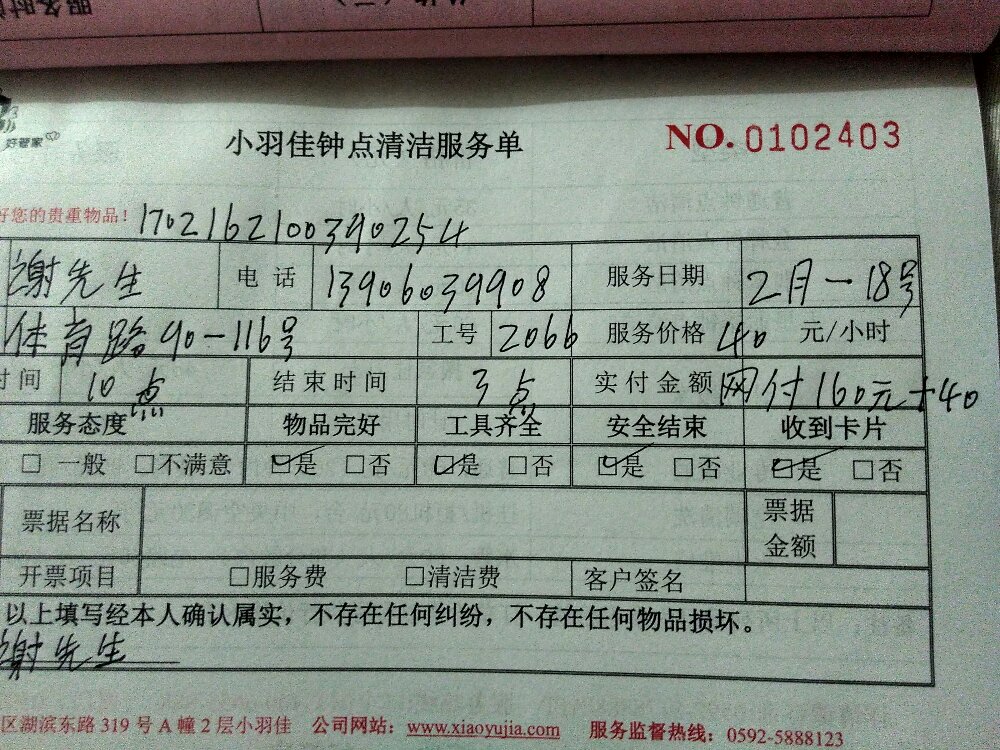 好管家
小羽佳钟点清洁服务单 NO. 0102403
好您的贵重物品！ 170216210039025​4
谢先生 电 话 13906039908 服务日期 2月-18号
体育路90-116号 工号 2066 服务价格 40 元/小时
时间 10点 结束时间 3点 实付金额 网付160元+40
服务态度 物品完好 工具齐全 安全结束 收到卡片
□ 一般 □不满意 ☑是 □否 ☑是 □否 ☑是 □否 ☑是 □否
票据名称 票据金额
开票项目 □服务费 □清洁费 客户签名
以上填写经本人确认属实，不存在任何纠纷，不存在任何物品损坏。
谢先生
区湖滨东路 319 号 A 幢 2 层小羽佳 公司网站：www.xiaoyujia.com 服务监督热线：0592-5888123